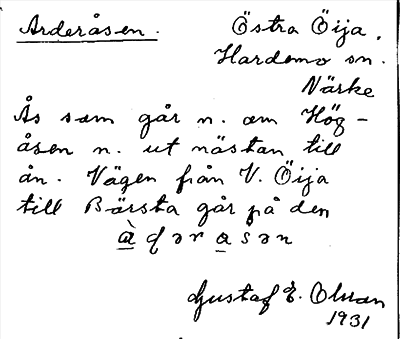 Arderåsen. Östra Öija.
Hardemo sn.
Närke
Ås som går n. om Hög-
åsen n. ut nästan till
ån. Vägen från V. Öija
till Bärsta går på den
Gustaf E. Olsson
1931